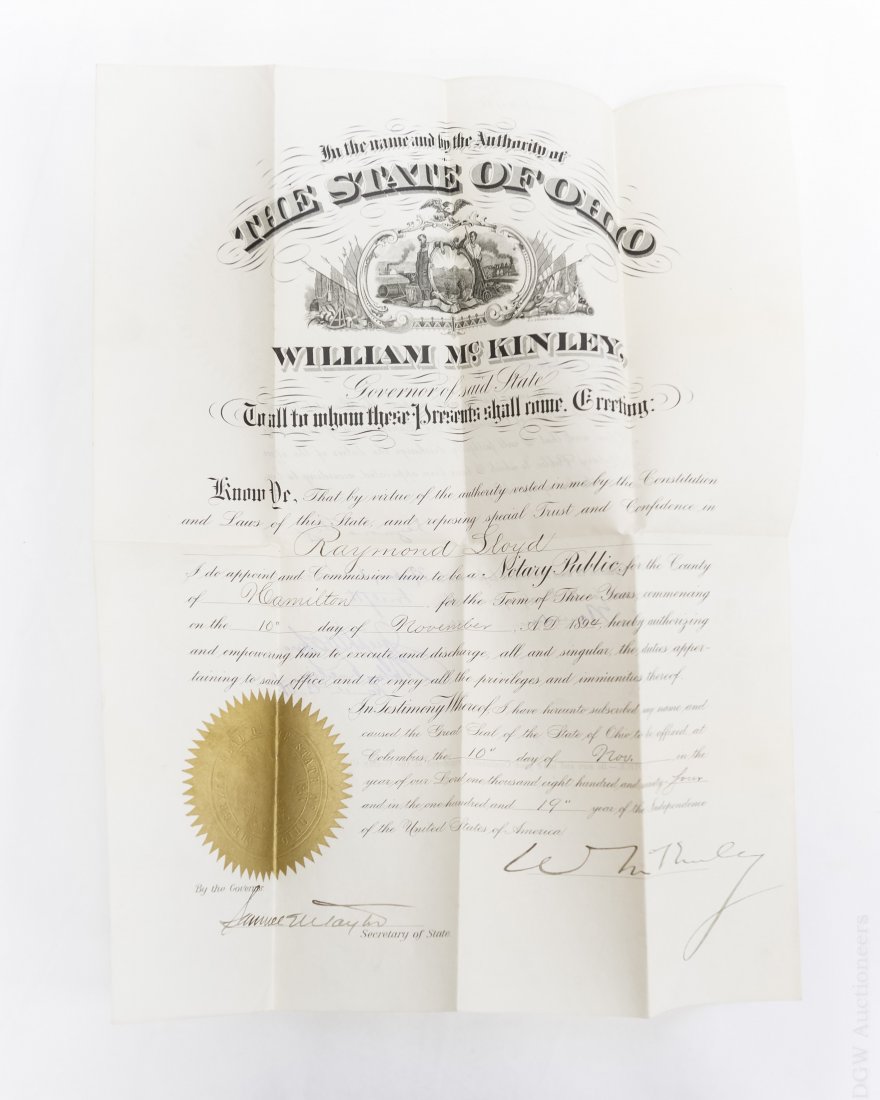 In the name and by the Authority of
THE STATE OF OHIO
WILLIAM Mc KINLEY,
Governor of said State
To all to whom these Presents shall come. Greeting:
Know Ye, That by virtue of the authority vested in me by the Constitution
and Laws of this State, and reposing special Trust and Confidence in
Raymond Lloyd
I do appoint and Commission him to be a Notary Public, for the County
of Hamilton for the Term of Three Years, commencing
on the 10" day of November, A.D. 1894, hereby authorizing
and empowering him to execute and discharge, all and singular, the duties apper-
taining to said office, and to enjoy all the privileges and immunities thereof.
In Testimony Whereof I have hereunto subscribed my name and
caused the Great Seal of the State of Ohio to be affixed, at
Columbus, the 10" day of Nov. in the
year of our Lord one thousand eight hundred and ninety-four
and in the one hundred and 19" year of the Independence
of the United States of America
W McKinley
By the Governor
Samuel M Taylor
Secretary of State.
DGW Auctioneers